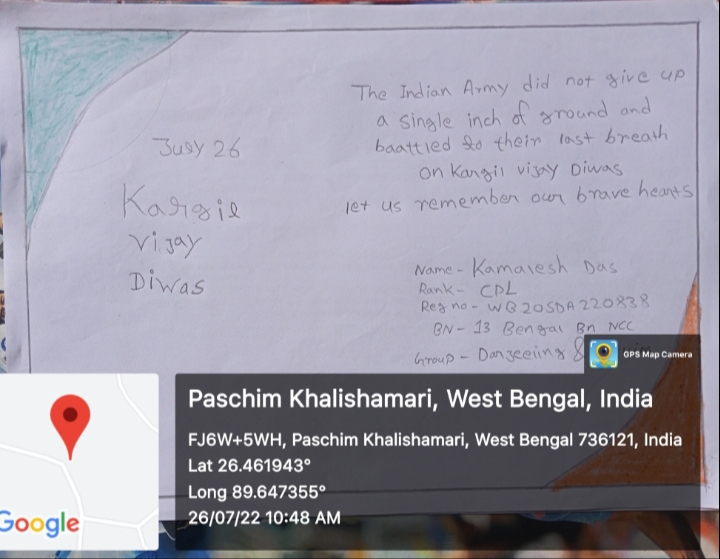 July 26
Kargil
Vijay
Diwas
The Indian Army did not give up
a single inch of ground and
baattled to their last breath
on Kangil vijay Diwas
let us remember our brave hearts
Name - Kamalesh Das
Rank - CPL
Reg no - WB20SDA220838
BN - 13 Bengal Bn NCC
Group - Darjeeing &
GPS Map Camera
Paschim Khalishamari, West Bengal, India
FJ6W+5WH, Paschim Khalishamari, West Bengal 736121, India
Lat 26.461943°
Long 89.647355°
26/07/22 10:48 AM
Google